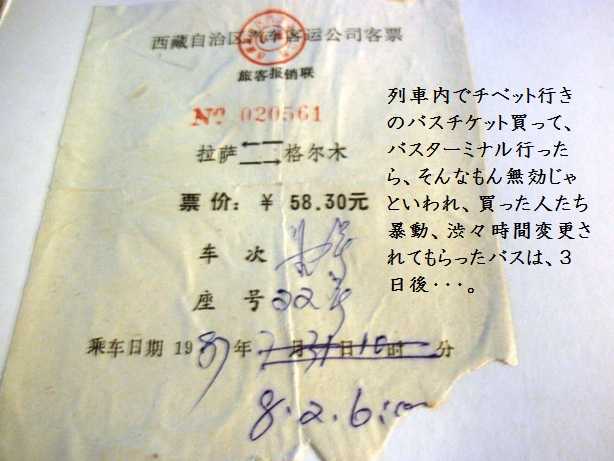 西藏自治区汽车客运公司客票
旅客报销联
No 020561
拉萨 格尔木
票价：￥ 58.30元
车次
座号 22号
乘车日期 1987年7月31日10时 分
8.2.6:00
列車内でチベット行き
のバスチケット買って、
バスターミナル行った
ら、そんなもん無効じゃ
といわれ、買った人たち
暴動、渋々時間変更さ
れてもらったバスは、３
日後・・・。